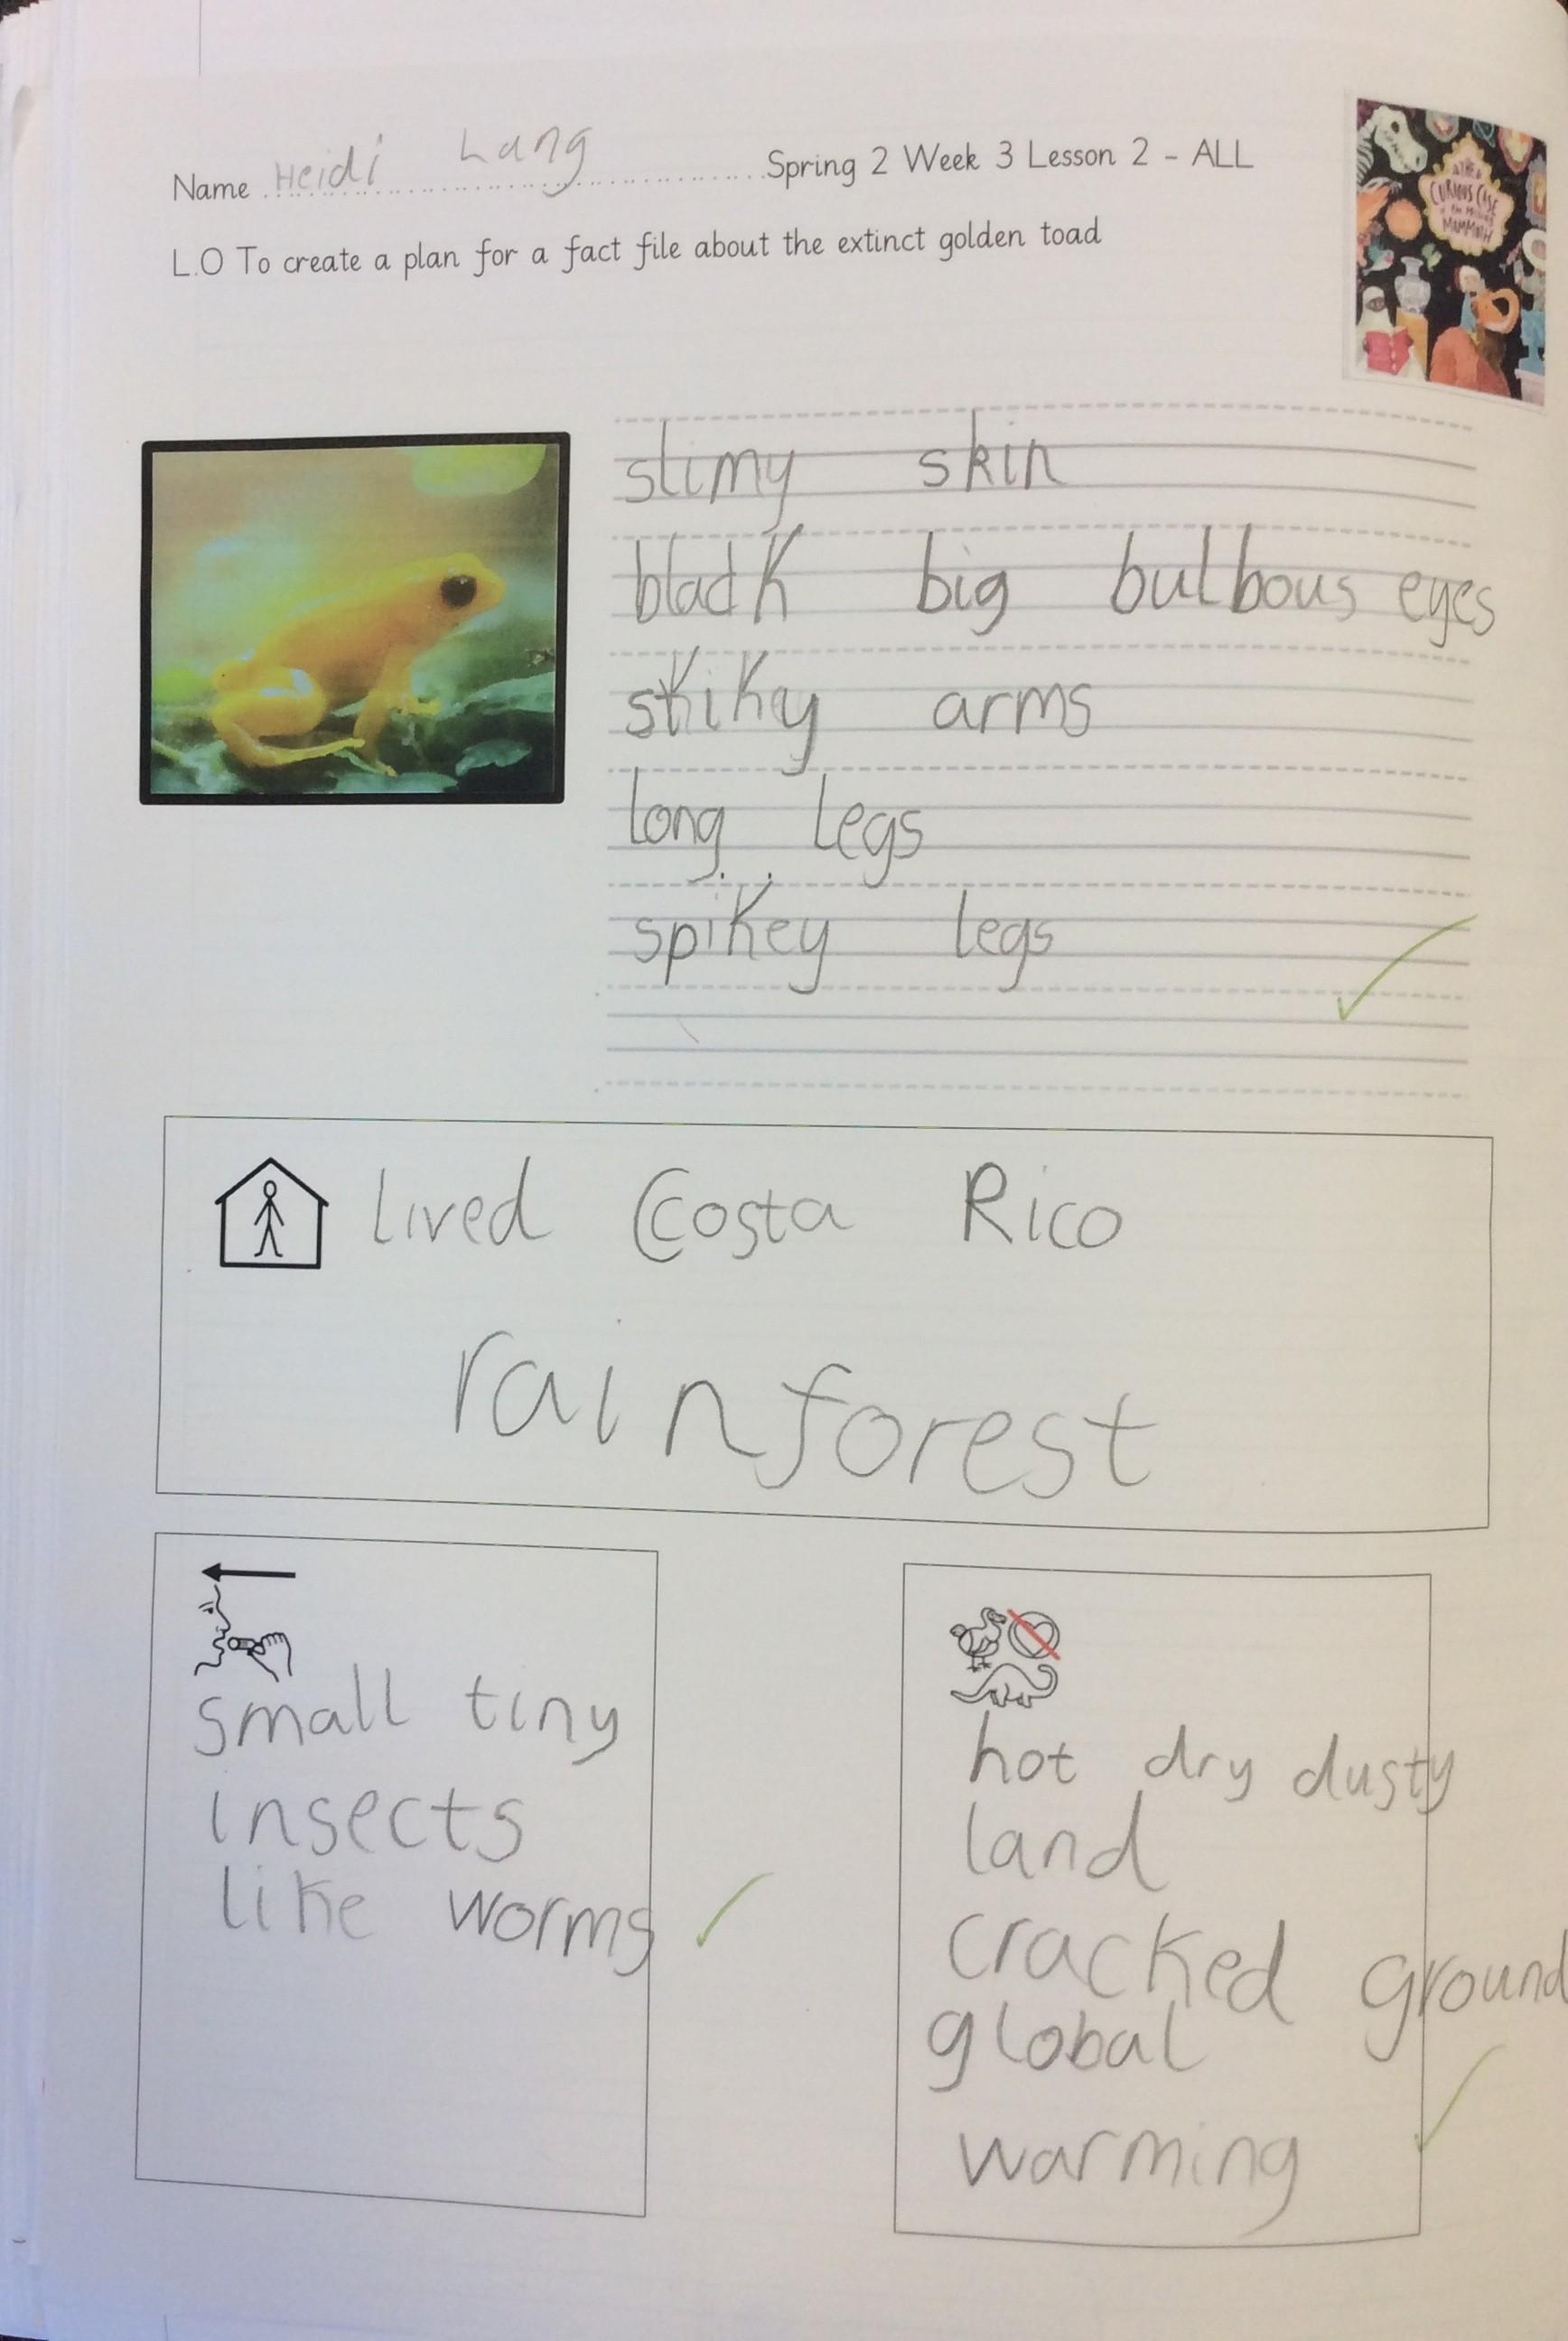 Name Heidi Lang Spring 2 Week 3 Lesson 2 - ALL
L.O To create a plan for a fact file about the extinct golden toad
THE
CURIOUS CASE
of the MISSING
MAMMOTH
slimy skin
black big bulbous eyes
skiky arms
long legs
spikey legs
lived Ccosta Rico
rainforest
small tiny
insects
like worms
hot dry dusty
land
cracked ground
global
warming